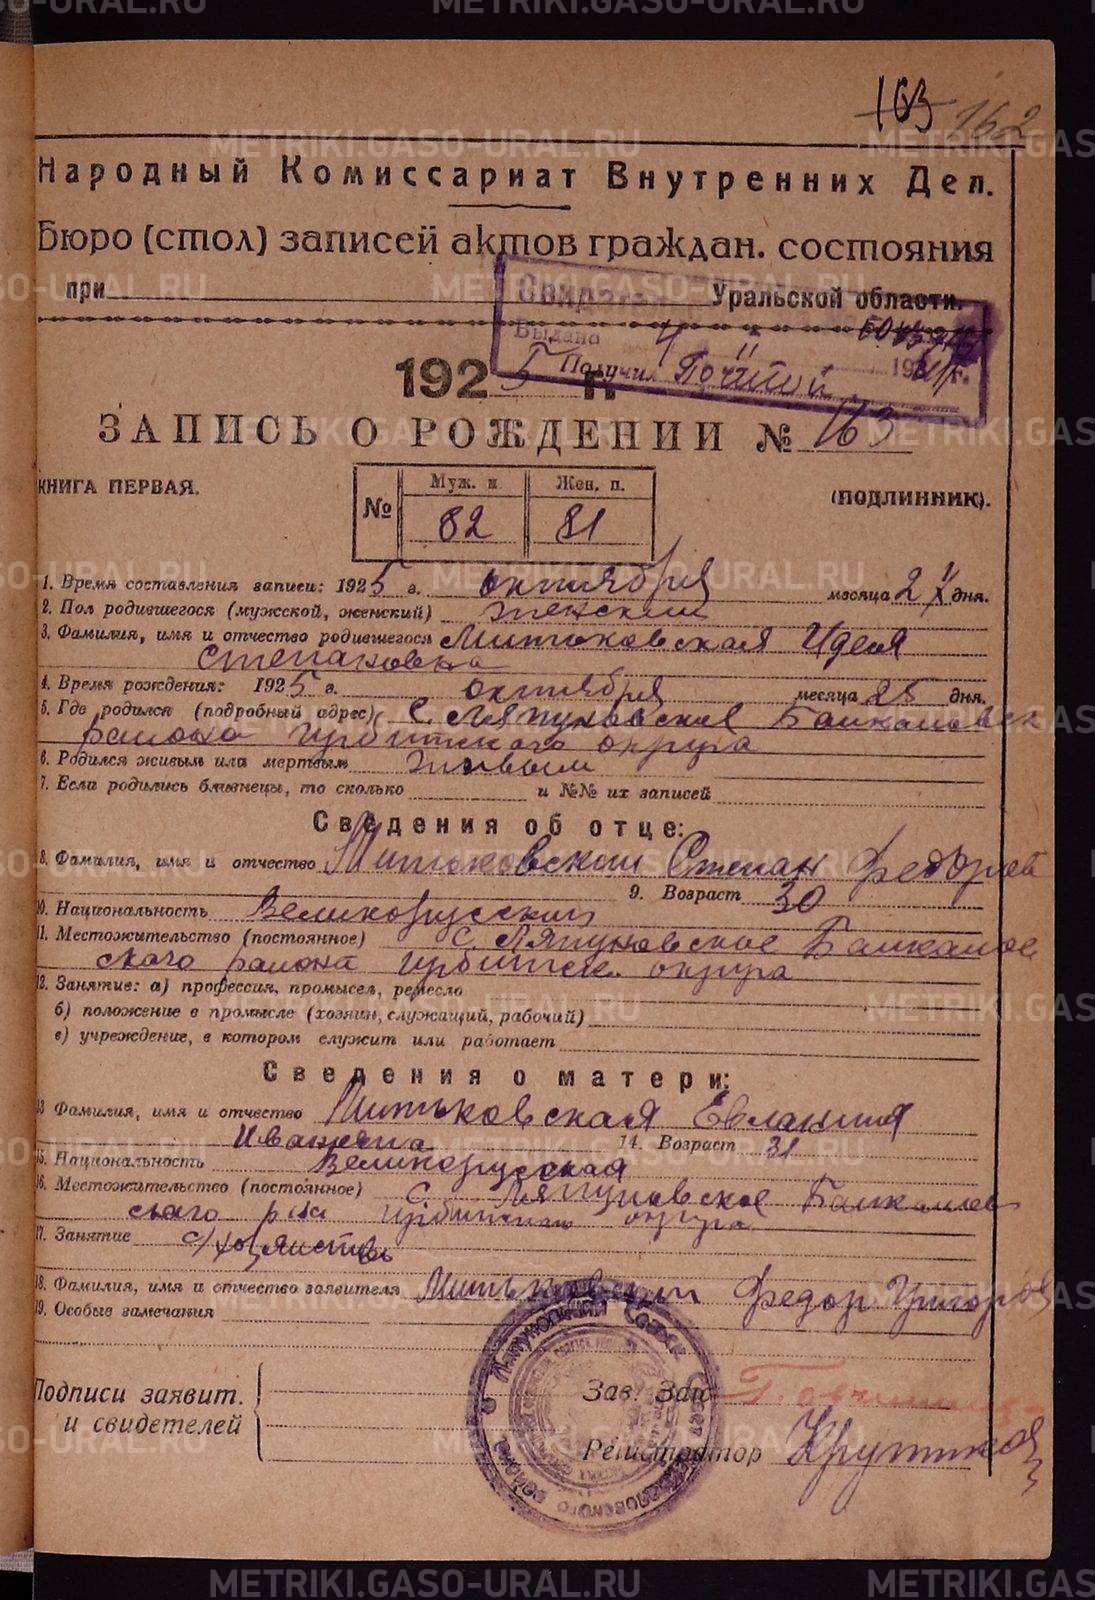 163 162
Народный Комиссариат Внутренних Дел.
Бюро (стол) записей актов граждан. состояния
при Уральской области.
Выдано 4
Получил Почтой
1925 г.
ЗАПИСЬ О РОЖДЕНИИ № 163
КНИГА ПЕРВАЯ. (ПОДЛИННИК).
№ Муж. п. Жен. п.
82 81
1. Время составления записи: 1925 г. октября месяца 27 дня.
2. Пол родившегося (мужской, женский) женский
3. Фамилия, имя и отчество родившегося Митьковская Идея
Степановна
4. Время рождения: 1925 г. октября месяца 25 дня.
5. Где родился (подробный адрес) с. Ляпуновское Байкаловск
района Ирбитского округа
6. Родился живым или мертвым живым
7. Если родились близнецы, то сколько и №№ их записей
Сведения об отце:
8. Фамилия, имя и отчество Митьковский Степан Федоров
9. Возраст 30
10. Национальность Великорусский
11. Местожительство (постоянное) с. Ляпуновское Байкалов
ского района Ирбитск. округа
12. Занятие: а) профессия, промысел, ремесло
б) положение в промысле (хозяин, служащий, рабочий)
в) учреждение, в котором служит или работает
Сведения о матери:
13 Фамилия, имя и отчество Митьковская Евлампия
Ивановна 14. Возраст 31
15. Национальность Великорусская
16. Местожительство (постоянное) с. Ляпуновское Байкалов
ского р-на Ирбитского округа
17. Занятие с/хозяйство
18. Фамилия, имя и отчество заявителя Митьковский Федор Григорьев
19. Особые замечания
Подписи заявит.
и свидетелей
Зав. Заг
Регистратор